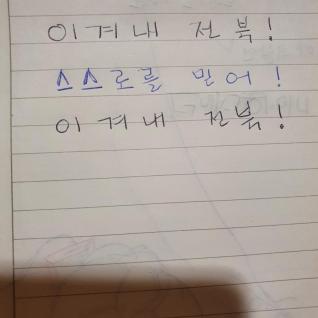 이겨내 전북!
스스로를 믿어!
이겨내 전북!